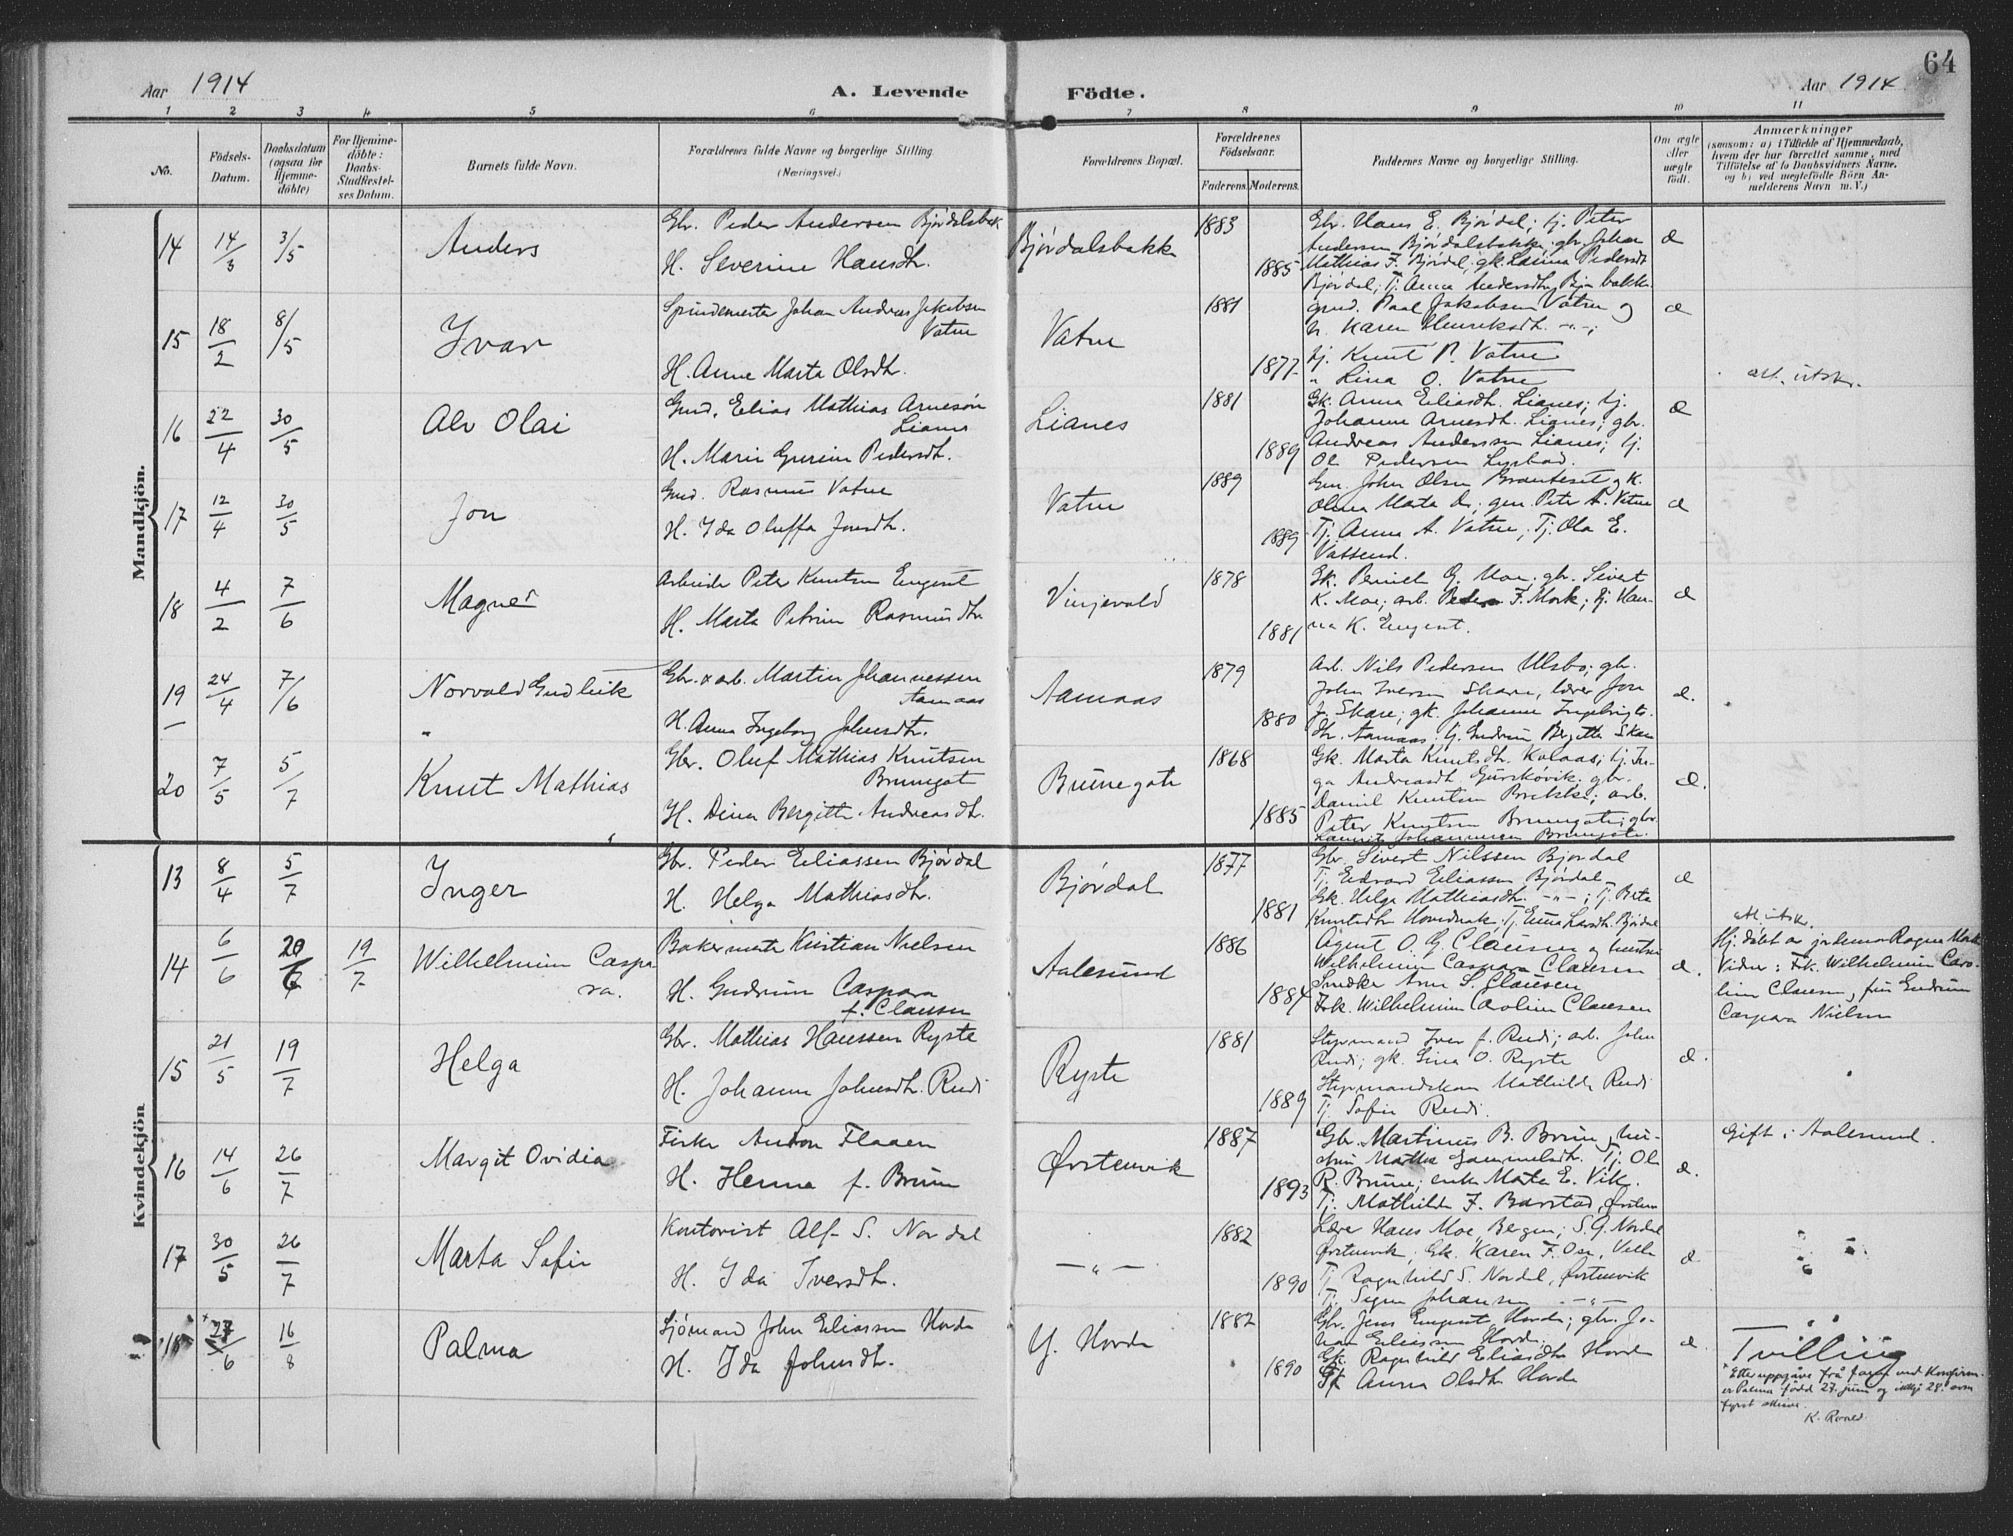 64
Aar 1914
A. Levende Födte.
Aar 1914
1 2 3 4 5 6 7 8 9 10 11
No.
Födsels-Datum.
Daabsdatum (ogsaa for Hjemme-döbte)
For Hjemme-döbte: Daabs-Stadfæstel-ses Datum.
Barnets fulde Navn.
Forældrenes fulde Navne og borgerlige Stilling.
(Næringsvei.)
Forældrenes Bopæl.
Forældrenes Födselsaar.
Faderens. Moderens.
Faddernes Navne og borgerlige Stilling.
Om ægte eller uægte födt.
Anmærkninger
(saasom: a) i Tilfælde af Hjemmedaab,
hvem der har forrettet samme, med
Tilföielse af to Daabsvidners Navne,
og b) ved uægtefödte Börn An-
melderens Navn m. V.)
Mandkjön.
14 14/3 3/5 Anders
Gbr. Peder Andersen Bjørdalsbak
H. Severine Hansdtr.
Bjørdalsbakk
1883
1885
Gbr. Hans E. Bjørdal; tj. Peter
Andersen Bjørdalsbakk; gbr. Johan
Mathias F. Bjørdal; gk. Lasina Pedersdt
Bjørdal; Tj. Anna Andersdtr
æ
15 18/2 8/5 Ivar
Johan Andreas Jakobsen
Vatne
H. Anne Marta Olsdtr.
Vatne
1881
1877
Paal Jakobsen Vatne og
h. Karen Henriksdt. -"-;
tj. Knut P. Vatne
" Lina O. Vatne
æ
att. utskr.
16 22/4 30/5 Alv Olai
Gmd. Elias Mathias Arnesøn
Lianes
H. Marie Gurine Pedersdt.
Lianes
1881
1889
Gk. Anna Eliasdt. Lianes; tj.
Johanne Arnesdt. Lianes; gbr.
Andreas Anderssen Lianes; tj.
Ole Pedersen
æ
17 12/4 30/5 Jon
Gmd. Rasmus Vatne
H. Ida Oluffa Jonsdt.
Vatne
1889
1889
Gm. John Olsen
Olina Marta Do; gm. Peter A. Vatne
Tj. Anna A. Vatne; Tj. Ola E.
Vassend.
æ
18 4/2 7/6 Magne
Arbeider Peter Knutsen Engeset
H. Marta Petrine Rasmusdtr
Vinjevold
1878
1881
Gk. Pernel G. Moe; gbr. Sivert
K. Moe; arb. Peder F. Mork; tj. Han-
na K. Engeset.
æ
19 24/4 7/6 Norvald Gudleik
Gbr. & arb. Martin Johannessen
Aamaas
H. Anna Ingeborg Johnsdtr.
Aamaas
1879
1880
Arb. Nils Pedersen Ulsbø; gbr.
John Iversen Skare, lærer Jon
J. Skare; gk. Johanne Ingebrigts-
dtr. Aamaas; tj. Gudrun Bergitte Skare
æ.
20 7/5 5/7 Knut Mathias
Gbr. Oluf Mathias Knutsen
Brungot
H. Dina Bergitte Andreasdt.
Brunegote
1868
1885
Gk. Marta Knutsdtr. Kolaas; tj. In-
ga Andreasdt. Gurskøvik; gbr.
Daniel Knutsen; arb.
Peter Knutsen; gbr.
æ.
Kvindekjön
13 8/4 5/7 Inger
Gbr. Peder Eliassen Bjørdal
H. Helga Mathiasdtr.
Bjørdal
1877
1881
Gbr. Sivert Nilssen Bjørdal
Tj. Edvard Eliassen Bjørdal
Gk. Helga Mathiasdtr. -"-; Tj. Berte
Knutsdtr
æ
14 6/6 20/7 19/7 Wilhelmine Caspa
ra.
Bakermester Kristian Nielsen
H. Gudrun Caspara
f. Clausen
Aalesund
1886
1884
Agent O. G. Clausen og hustru
Wilhelmine Caspara Clausen
Snedker Arne S. Clausen
Frk. Wilhelmine Caroline Clausen
æ.
att. utskr.
Hj. døbt av jordemor Ragna Mork
Vidner: Frk. Wilhelmine Caro-
line Clausen, fru Gudrun
Caspara Nielsen
15 21/5 19/7 Helga
Gbr. Mathias Hanssen Ryste
H. Johanne Johnsdtr. Rudi
Ryste
1881
1889
Styrmand Iver J. Rudi; arb. John
Rudi; gk. Gina O. Ryste
Styrmandskone Mathilde Rudi
Tj. Sofie Rudi.
æ.
16 14/6 26/7 Margit Ovidia
Fisker Anton Flaaen
H. Herma f. Brune
Ørstenvik
1887
1893
Gbr. Martinus B. Brune, hu-
stru Marthe; Tj. Ole
R. Brune; enke Marte E. Vik.
Tj. Mathilde F. Barstad, Ørsten
æ.
Gift i Aalesund.
17 30/5 26/7 Marta Sofie
Kontorist Alf S. Nordal
H. Ida Iversdtr.
—"—
1882
1890
Lærer Hans Moe, Bergen; S. G. Nordal
Ørstenvik; Gk. Karen F. Ose,
Tj. Ragnhild S. Nordal, Ørstenvik
Tj. Signe Johansen -"-
æ
18 27/6 16/8 Palma
Sjømand John Eliassen Hovde
H. Ida Johnsdtr.
Y. Hovde
1882
1890
Gbr. Jens Engeset Hovde; gbr. Jo-
han Eliassen Hovde.
Gk. Ragnhild Eliasdtr Hovde
Gk Anna Olsdtr Hovde
æ.
Tvilling
* Etter uppgåve frå faren ved konfirm.
er Palma fødd 27. juni og ikkje 28. som
fyrst skrive.
K. Roald